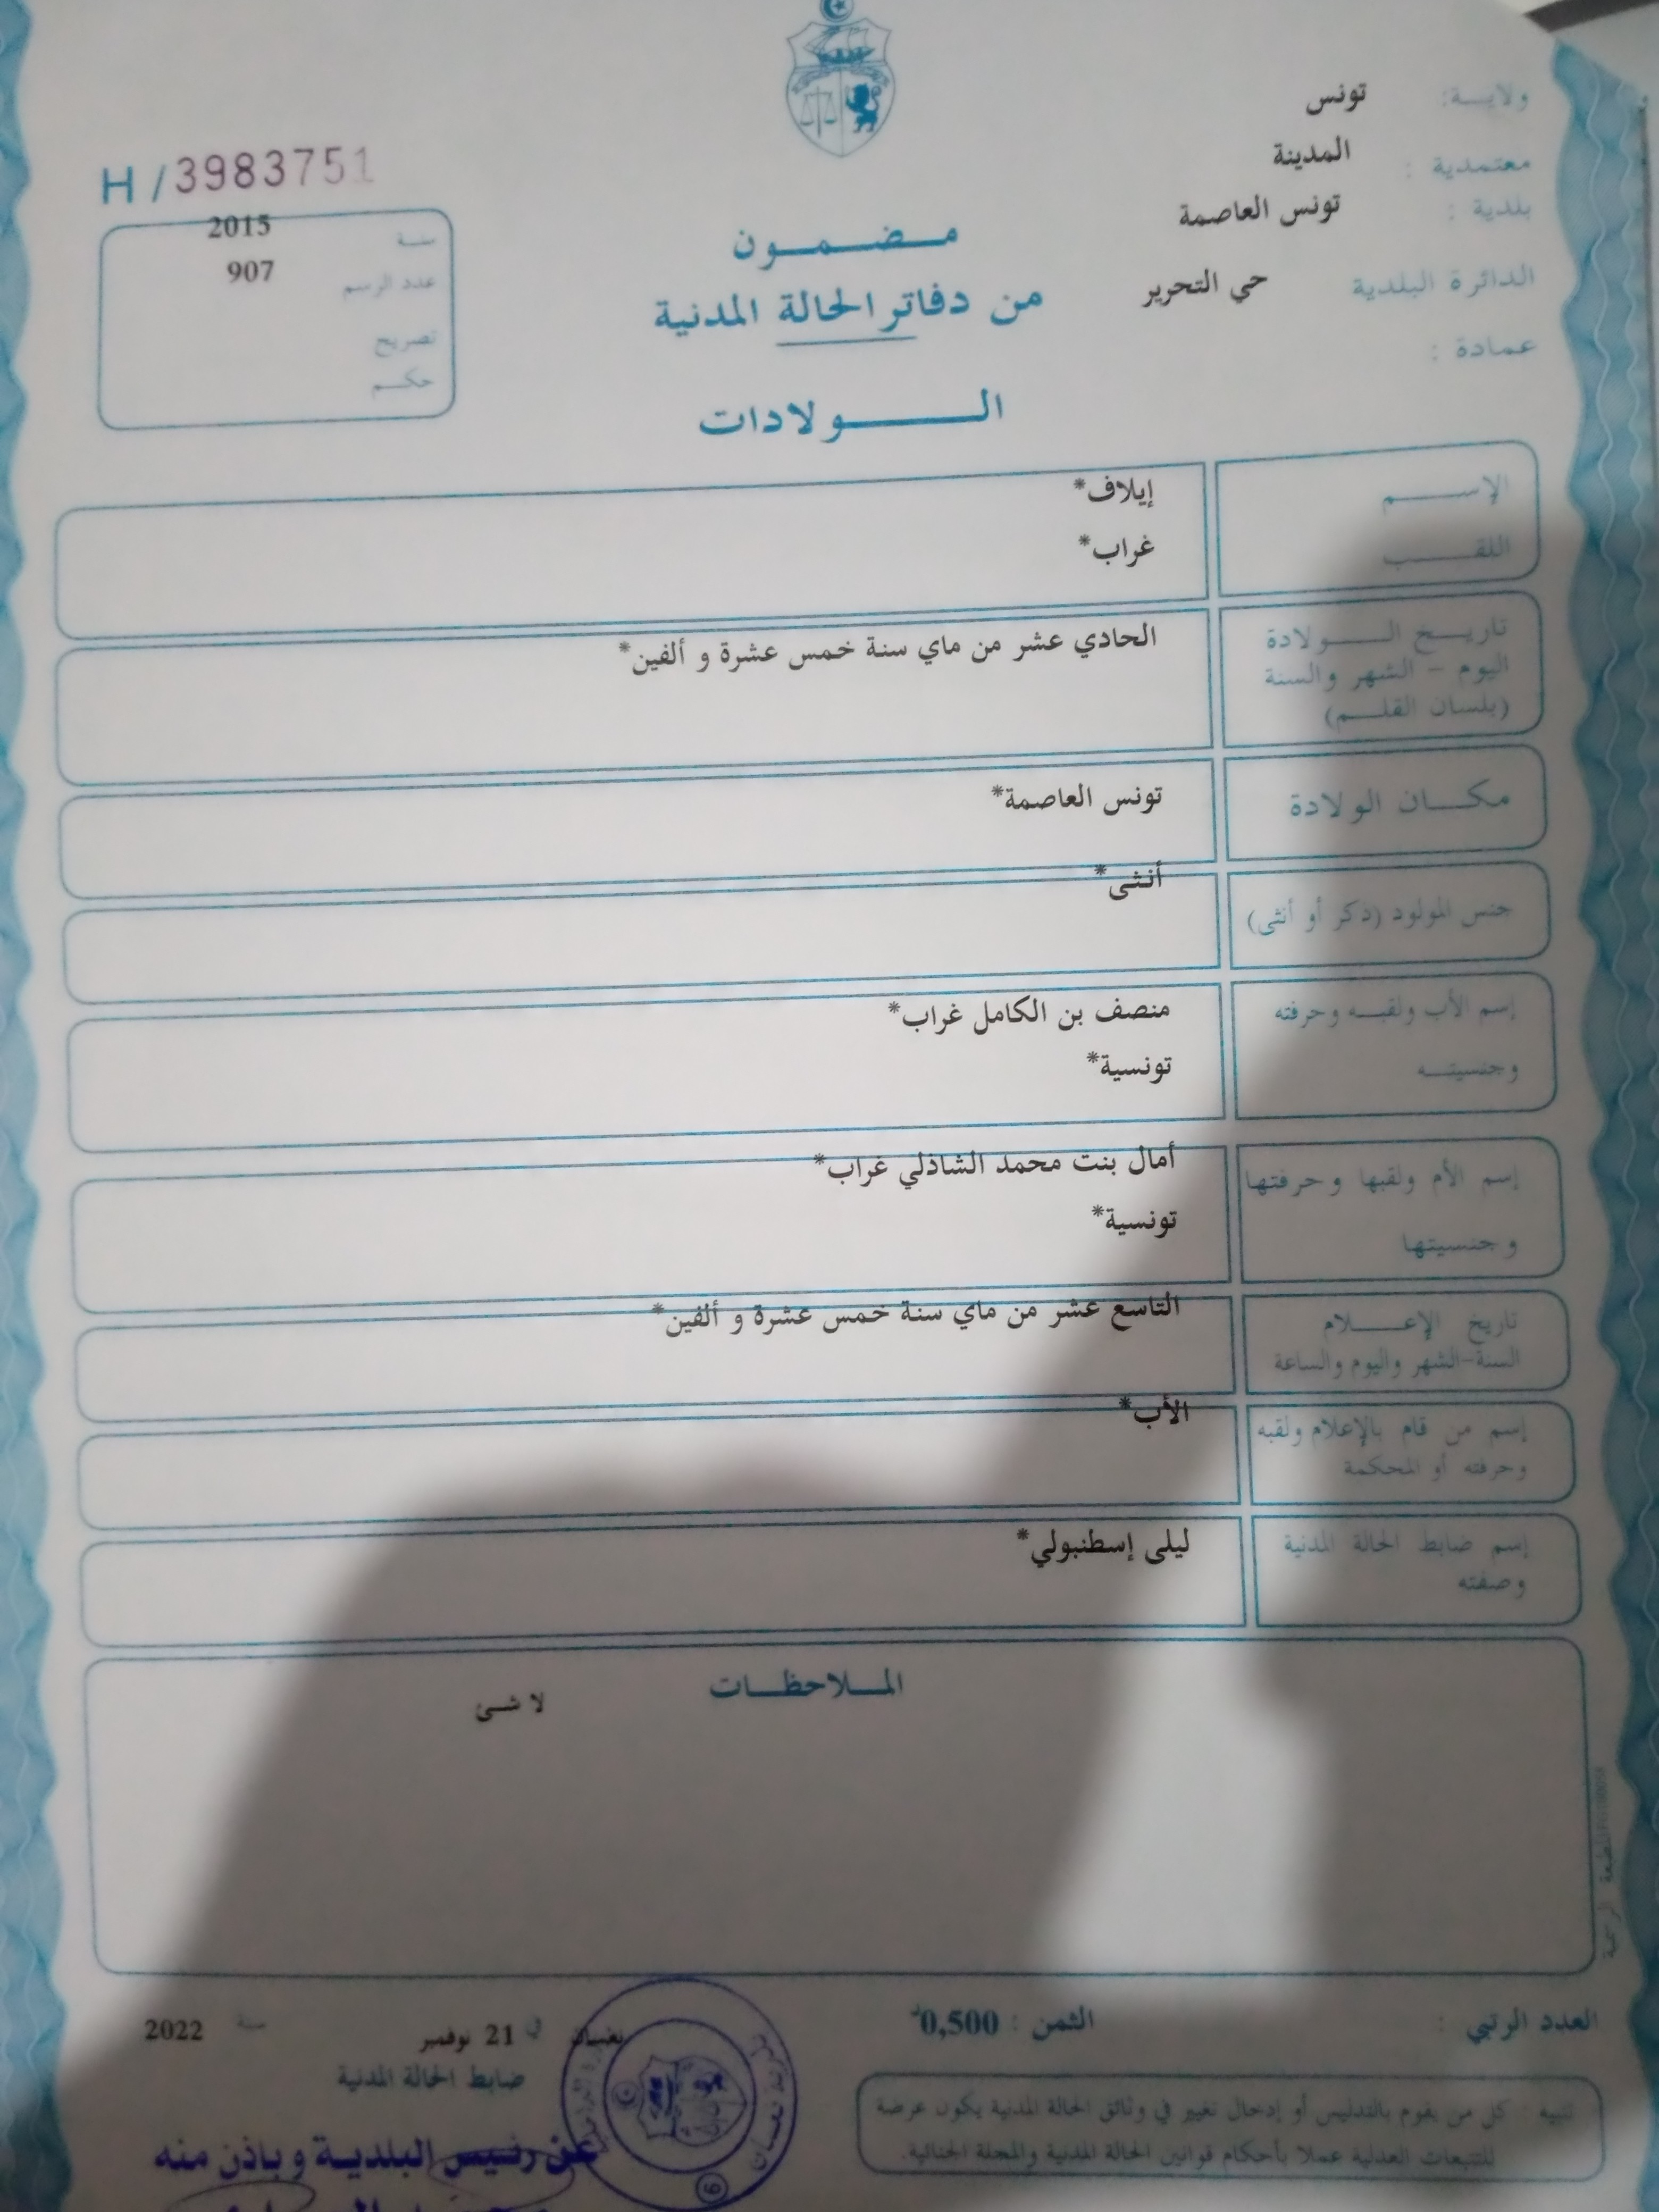 ولاية: تونس
معتمدية : المدينة
بلدية : تونس العاصمة
الدائرة البلدية حي التحرير
عمادة :
H / 3983751
سنة 2015
عدد الرسم 907
تصريح
حكم
مضمون
من دفاتر الحالة المدنية
الولادات
الإسم إيلاف*
اللقب غراب*
تاريخ الولادة الحادي عشر من ماي سنة خمس عشرة و ألفين*
اليوم - الشهر والسنة
(بلسان القلم)
مكان الولادة تونس العاصمة*
جنس المولود (ذكر أو أنثى) أنثى*
إسم الأب ولقبه وحرفته منصف بن الكامل غراب*
وجنسيته تونسية*
إسم الأم ولقبها وحرفتها أمال بنت محمد الشاذلي غراب*
وجنسيتها تونسية*
تاريخ الإعلام التاسع عشر من ماي سنة خمس عشرة و ألفين*
السنة-الشهر واليوم والساعة
إسم من قام بالإعلام ولقبه الأب*
وحرفته أو المحكمة
إسم ضابط الحالة المدنية ليلى إسطنبولي*
وصفته
الملاحظات
لا شئ
العدد الرتبي :
الثمن : 0,500د
بغسان في 21 نوفمبر سنة 2022
ضابط الحالة المدنية
تنبيه : كل من يقوم بالتدليس أو إدخال تغيير في وثائق الحالة المدنية يكون عرضة
للتتبعات العدلية عملا بأحكام قوانين الحالة المدنية والمجلة الجنائية.
عن رئيس البلدية وباذن منه